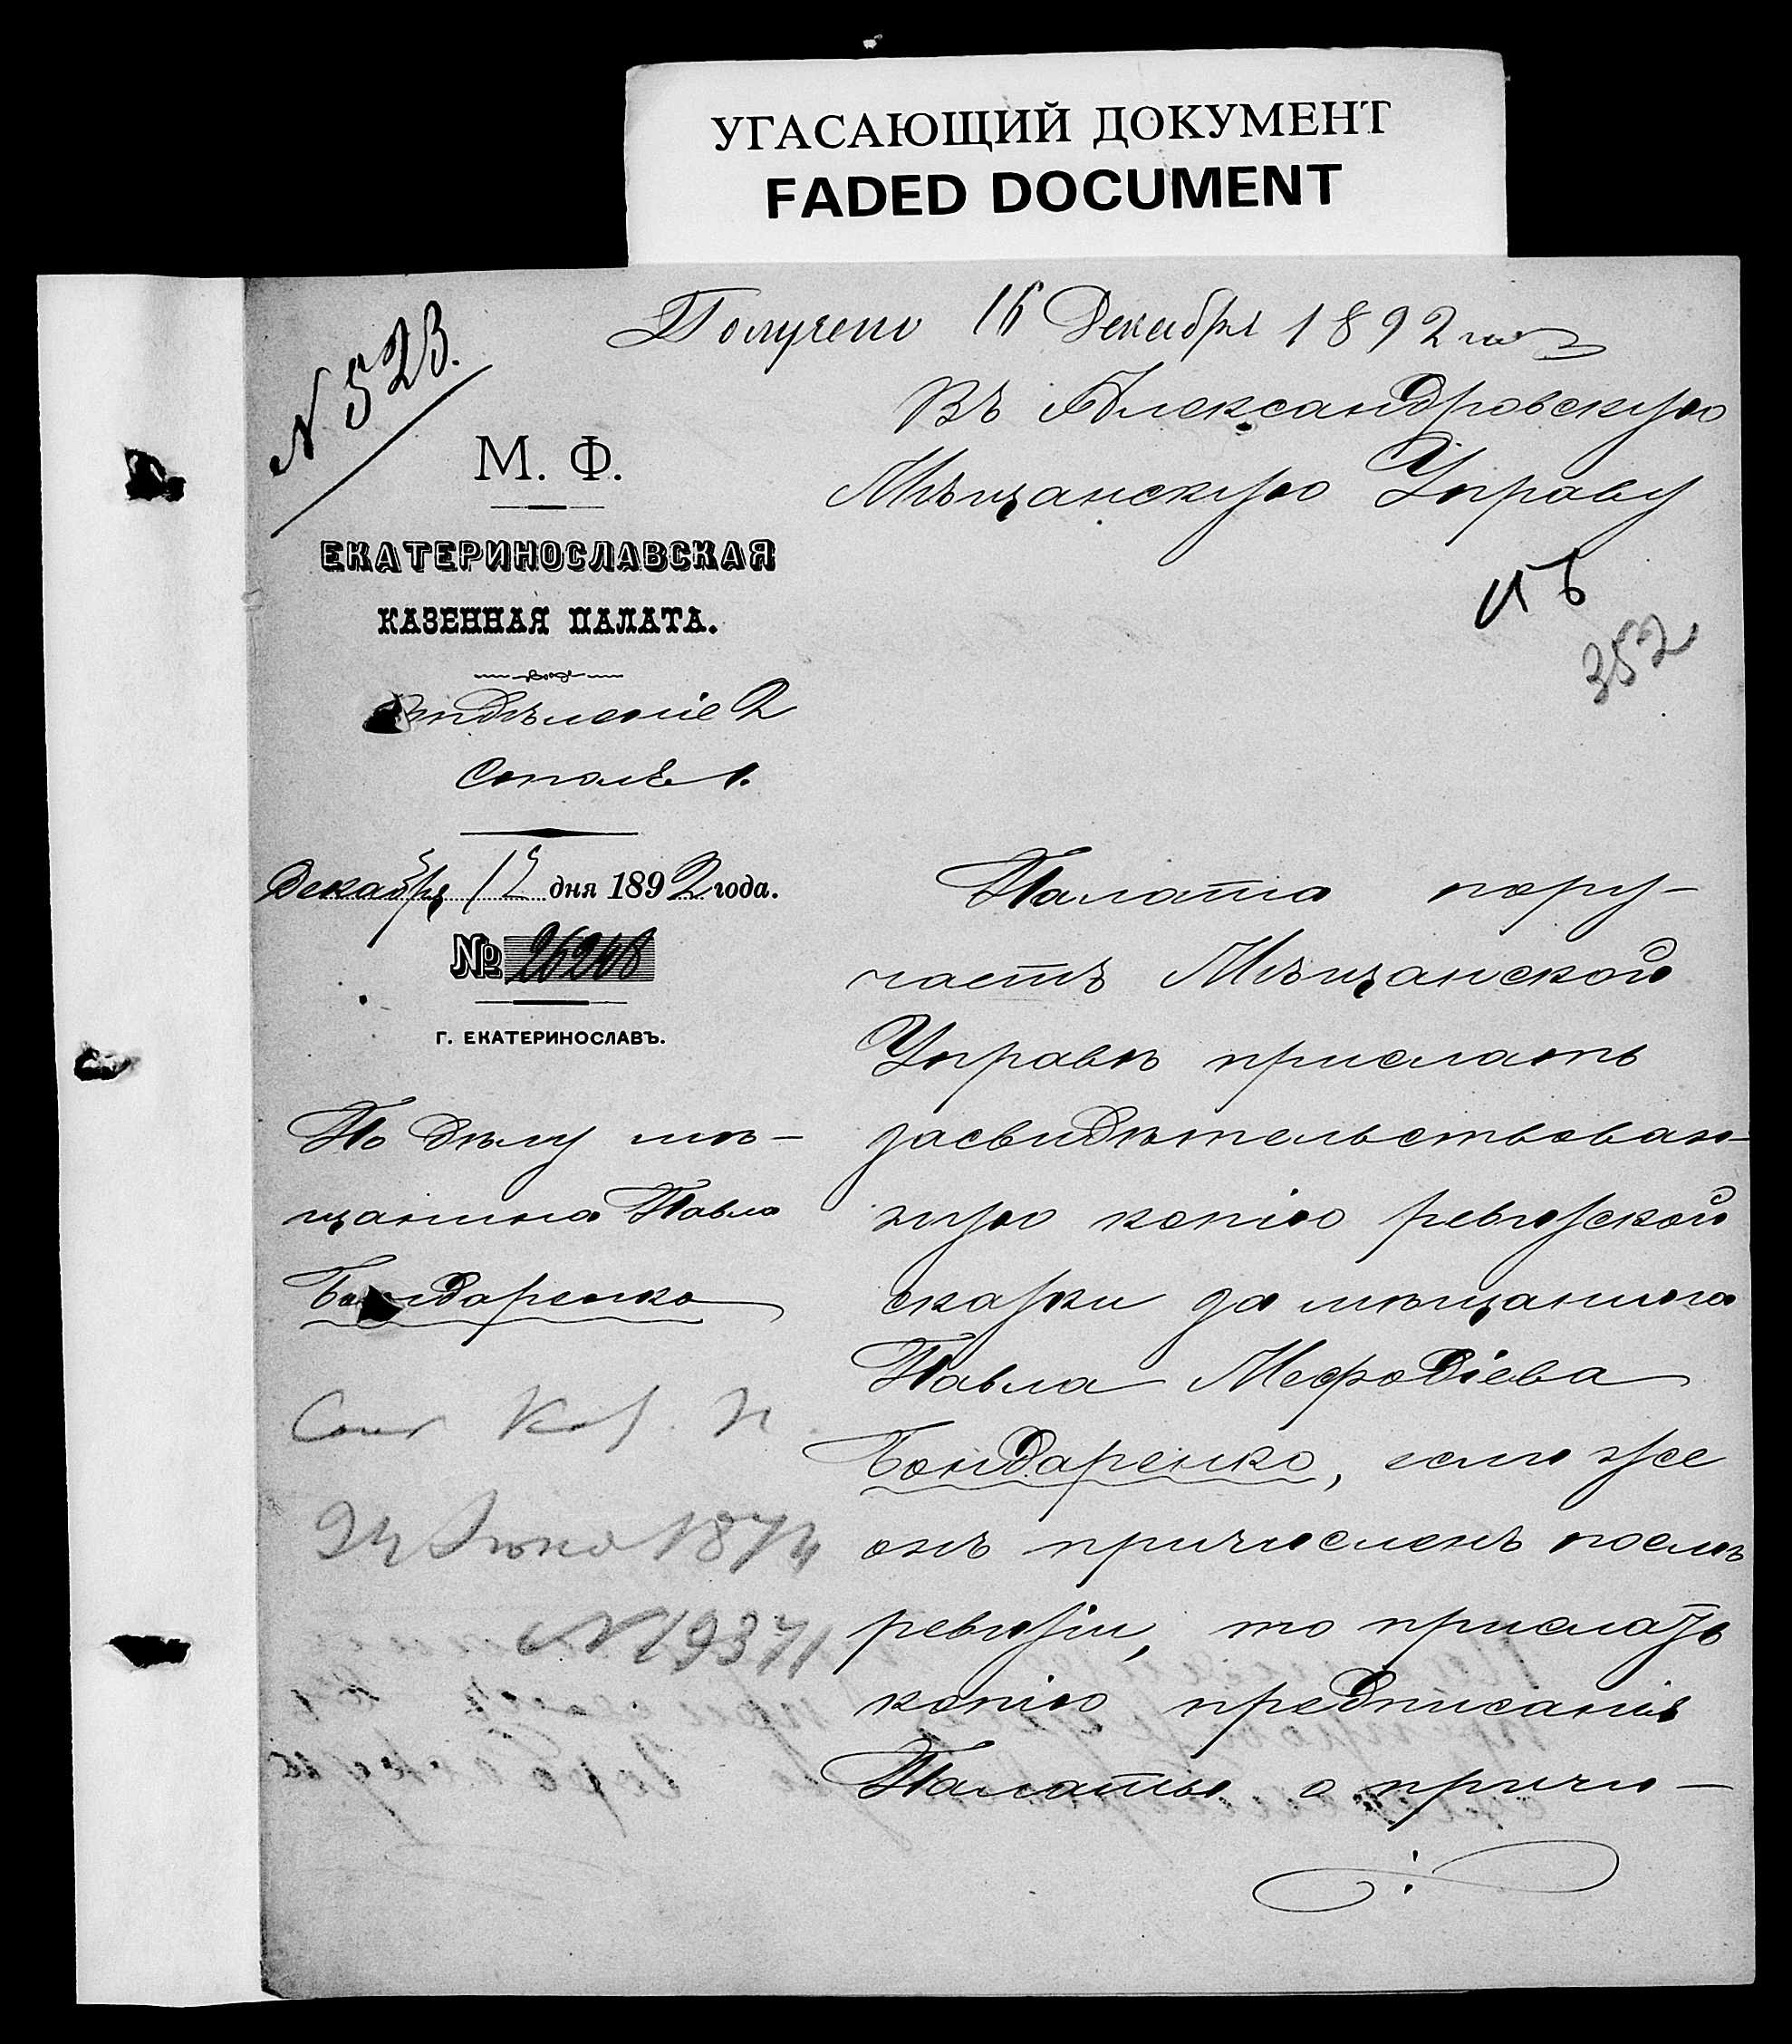 УГАСАЮЩИЙ ДОКУМЕНТ
FADED DOCUMENT
Получено 16 Декабря 1892 года
№ 523.
Въ Александровскую
Мѣщанскую Управу
М. Ф.
ЕКАТЕРИНОСЛАВСКАЯ
КАЗЕННАЯ ПАЛАТА.
352
Отдѣленіе 2
Столъ 1.
Декабря 12 дня 1892 года.
№ 26248
Г. ЕКАТЕРИНОСЛАВЪ.
По дѣлу мѣ-
щанина Павла
Бондаренко
24 1874
№ 19371
Палата пору-
чаетъ Мѣщанской
Управѣ прислать
засвидѣтельствован-
ную копію ревизской
сказки за мѣщанина
Павла Мефодіева
Бондаренко, если же
онъ причисленъ послѣ
ревизіи, то прислать
копію предписанія
Палаты о причи-